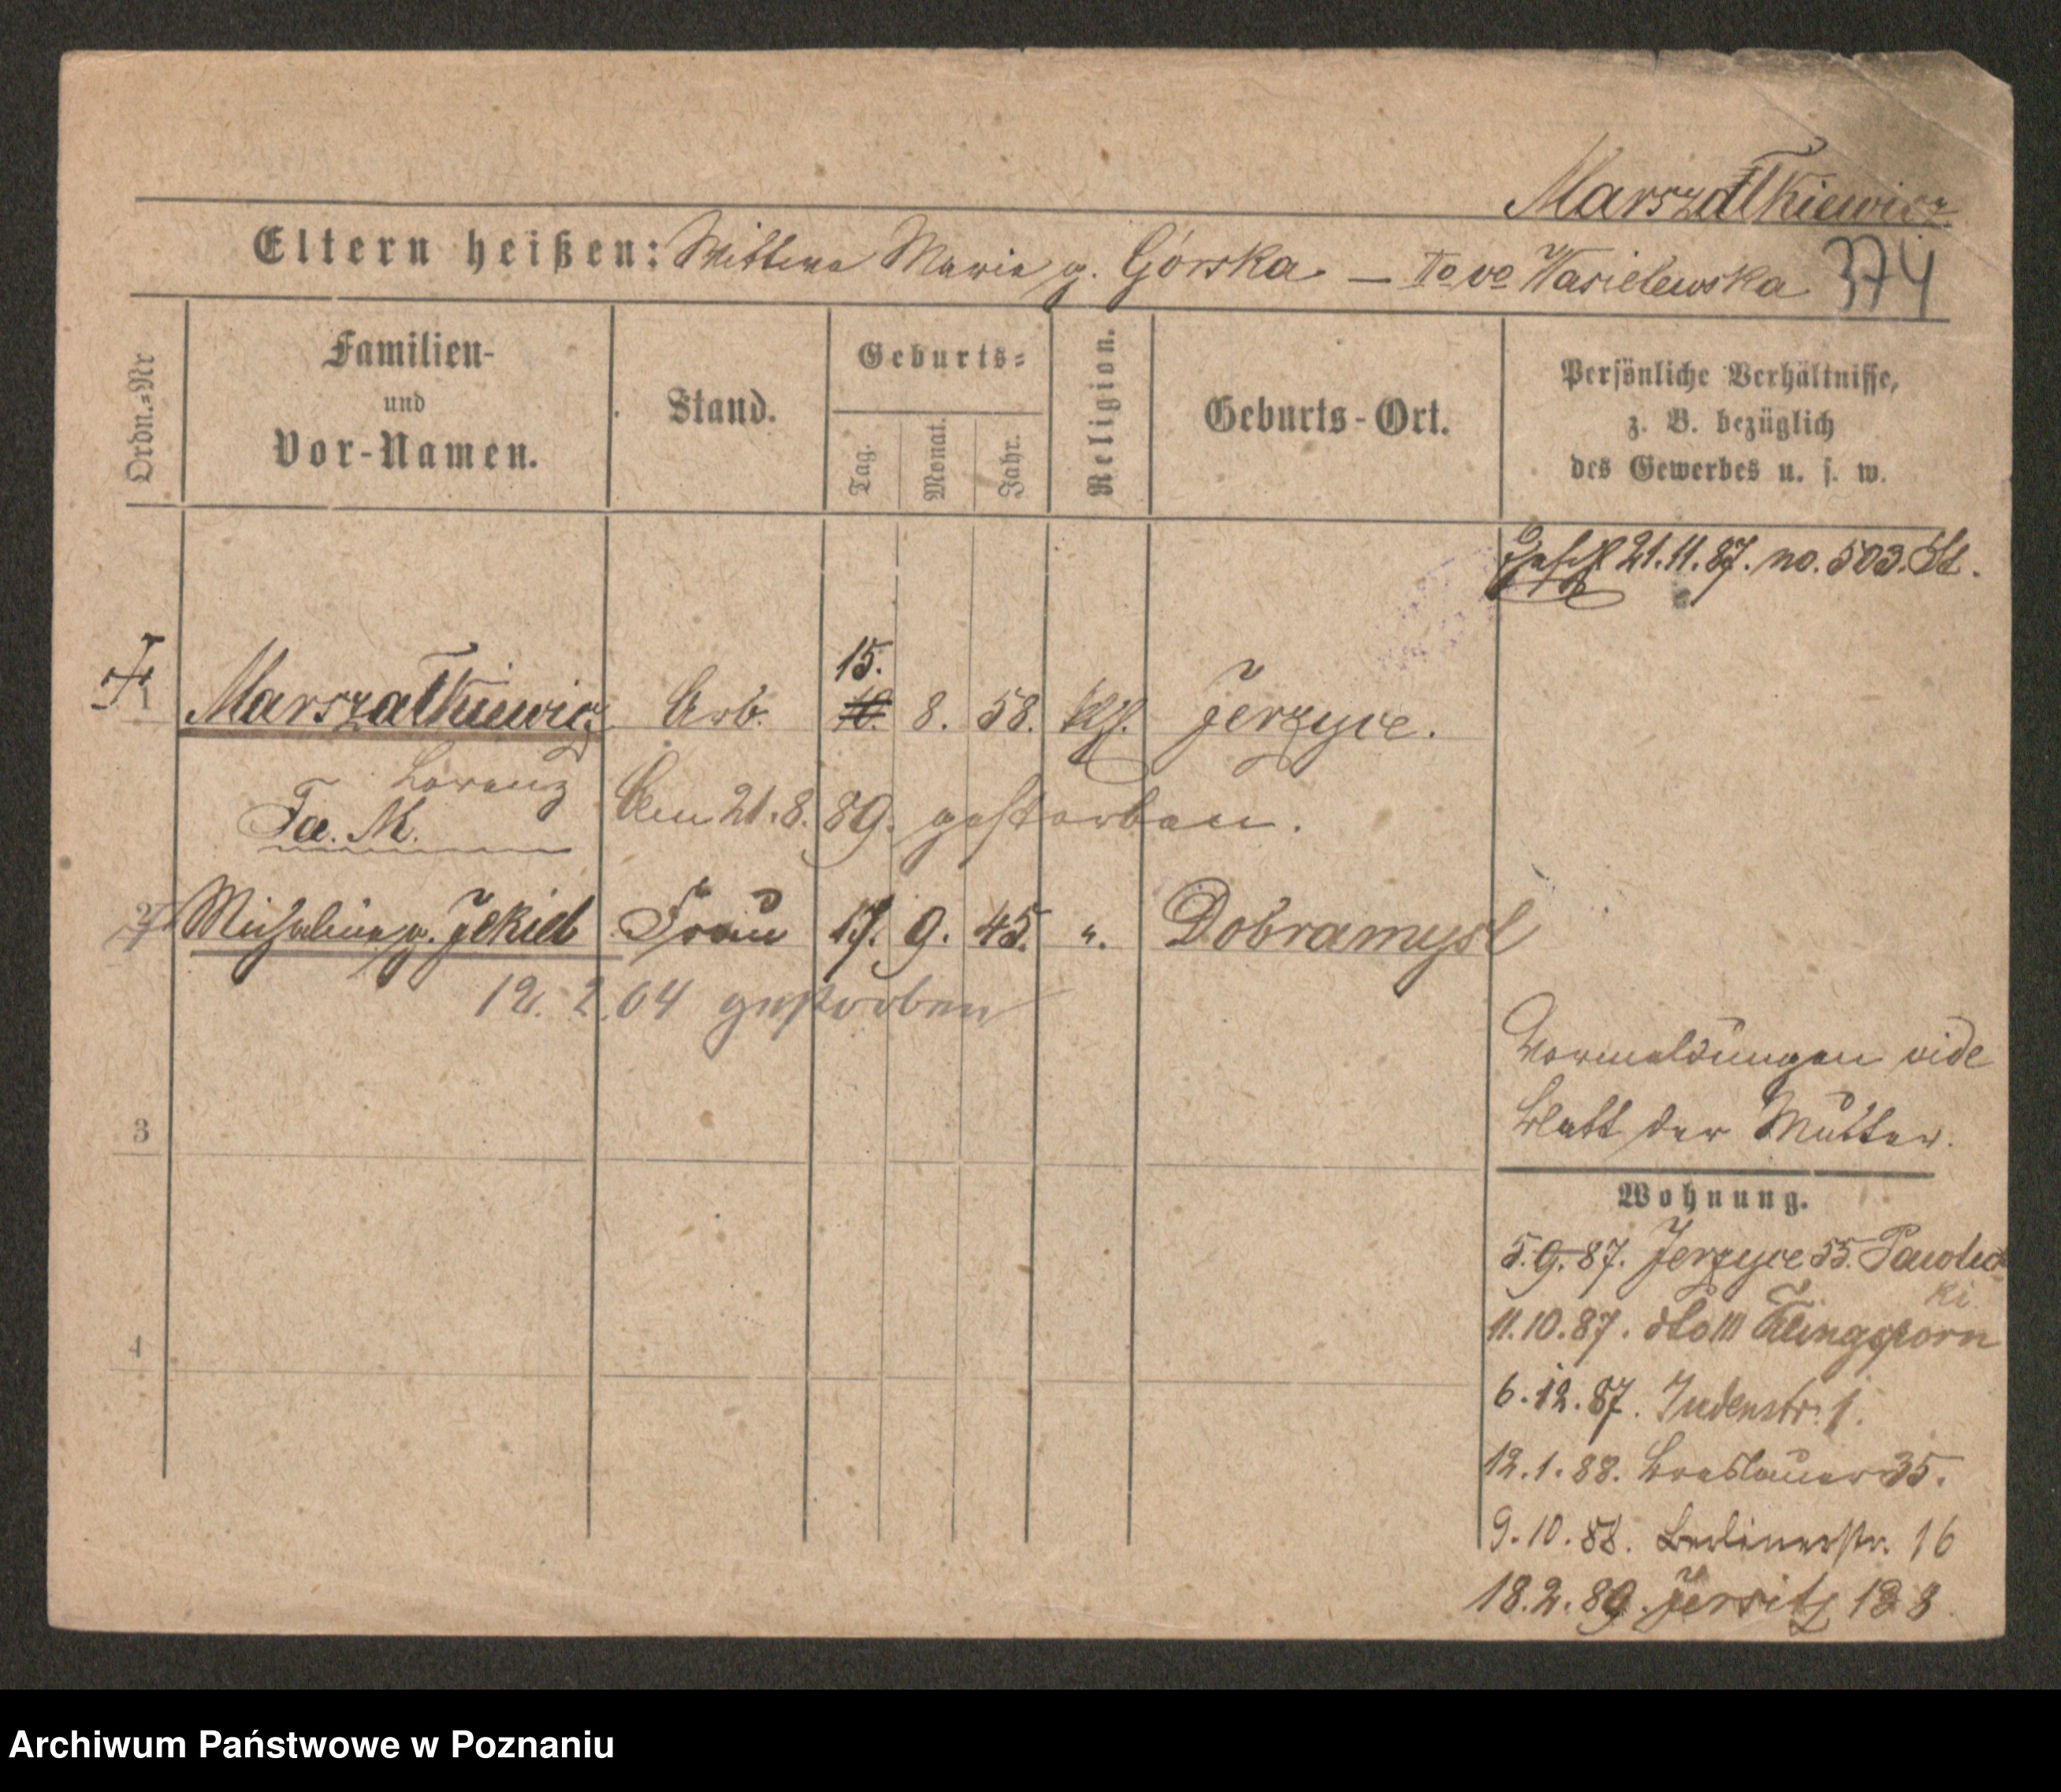 Marszałkiewicz
Eltern heißen: Wittwe Maria g. Górska – IIo vo Wasielewska 374
Ordn.=Nr
Familien-
und
Vor-Namen.
Stand.
Geburts=
Tag.
Monat.
Jahr.
Religion.
Geburts-Ort.
Persönliche Verhältnisse,
z. B. bezüglich
des Gewerbes u. s. w.
21.11.87. no. 503. St.
15.
1 Marszałkiewicz Arb. 8. 58. kth. Jerzyce.
Lorenz Am 21.8.89. gestorben.
Fa. M.
2 Michalina g. Jekiel Frau 17. 9. 45. ". Dobramysl
12. 2. 04 gestorben
Vormeldungen vide
Blatt der Mutter.
3
Wohnung.
5.9.87. Jerzyce 55. Pawlic
ki
11.10.87. dto 111 Klingsporn
4
6.12.87. Judenstr. 1.
12.1.88. Breslauer 35.
9.10.88. Berlinerstr. 16
18.2.89. Jersitz 188
Archiwum Państwowe w Poznaniu